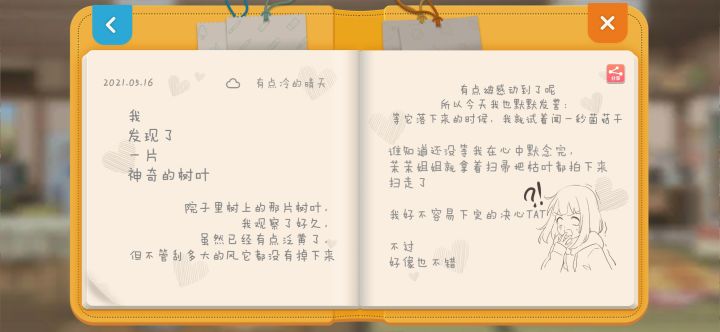 2021.03.16
有点冷的晴天
我
发现了
一片
神奇的树叶
院子里树上的那片树叶，
我观察了好久，
虽然已经有点泛黄了，
但不管刮多大的风它都没有掉下来
分享
有点被感动到了呢
所以今天我也默默发誓：
等它落下来的时候，我就试着闻一秒菌菇干
谁知道还没等我在心中默念完，
茉茉姐姐就拿着扫帚把枯叶都拍下来
扫走了
?!
我好不容易下定的决心TAT
不过
好像也不错